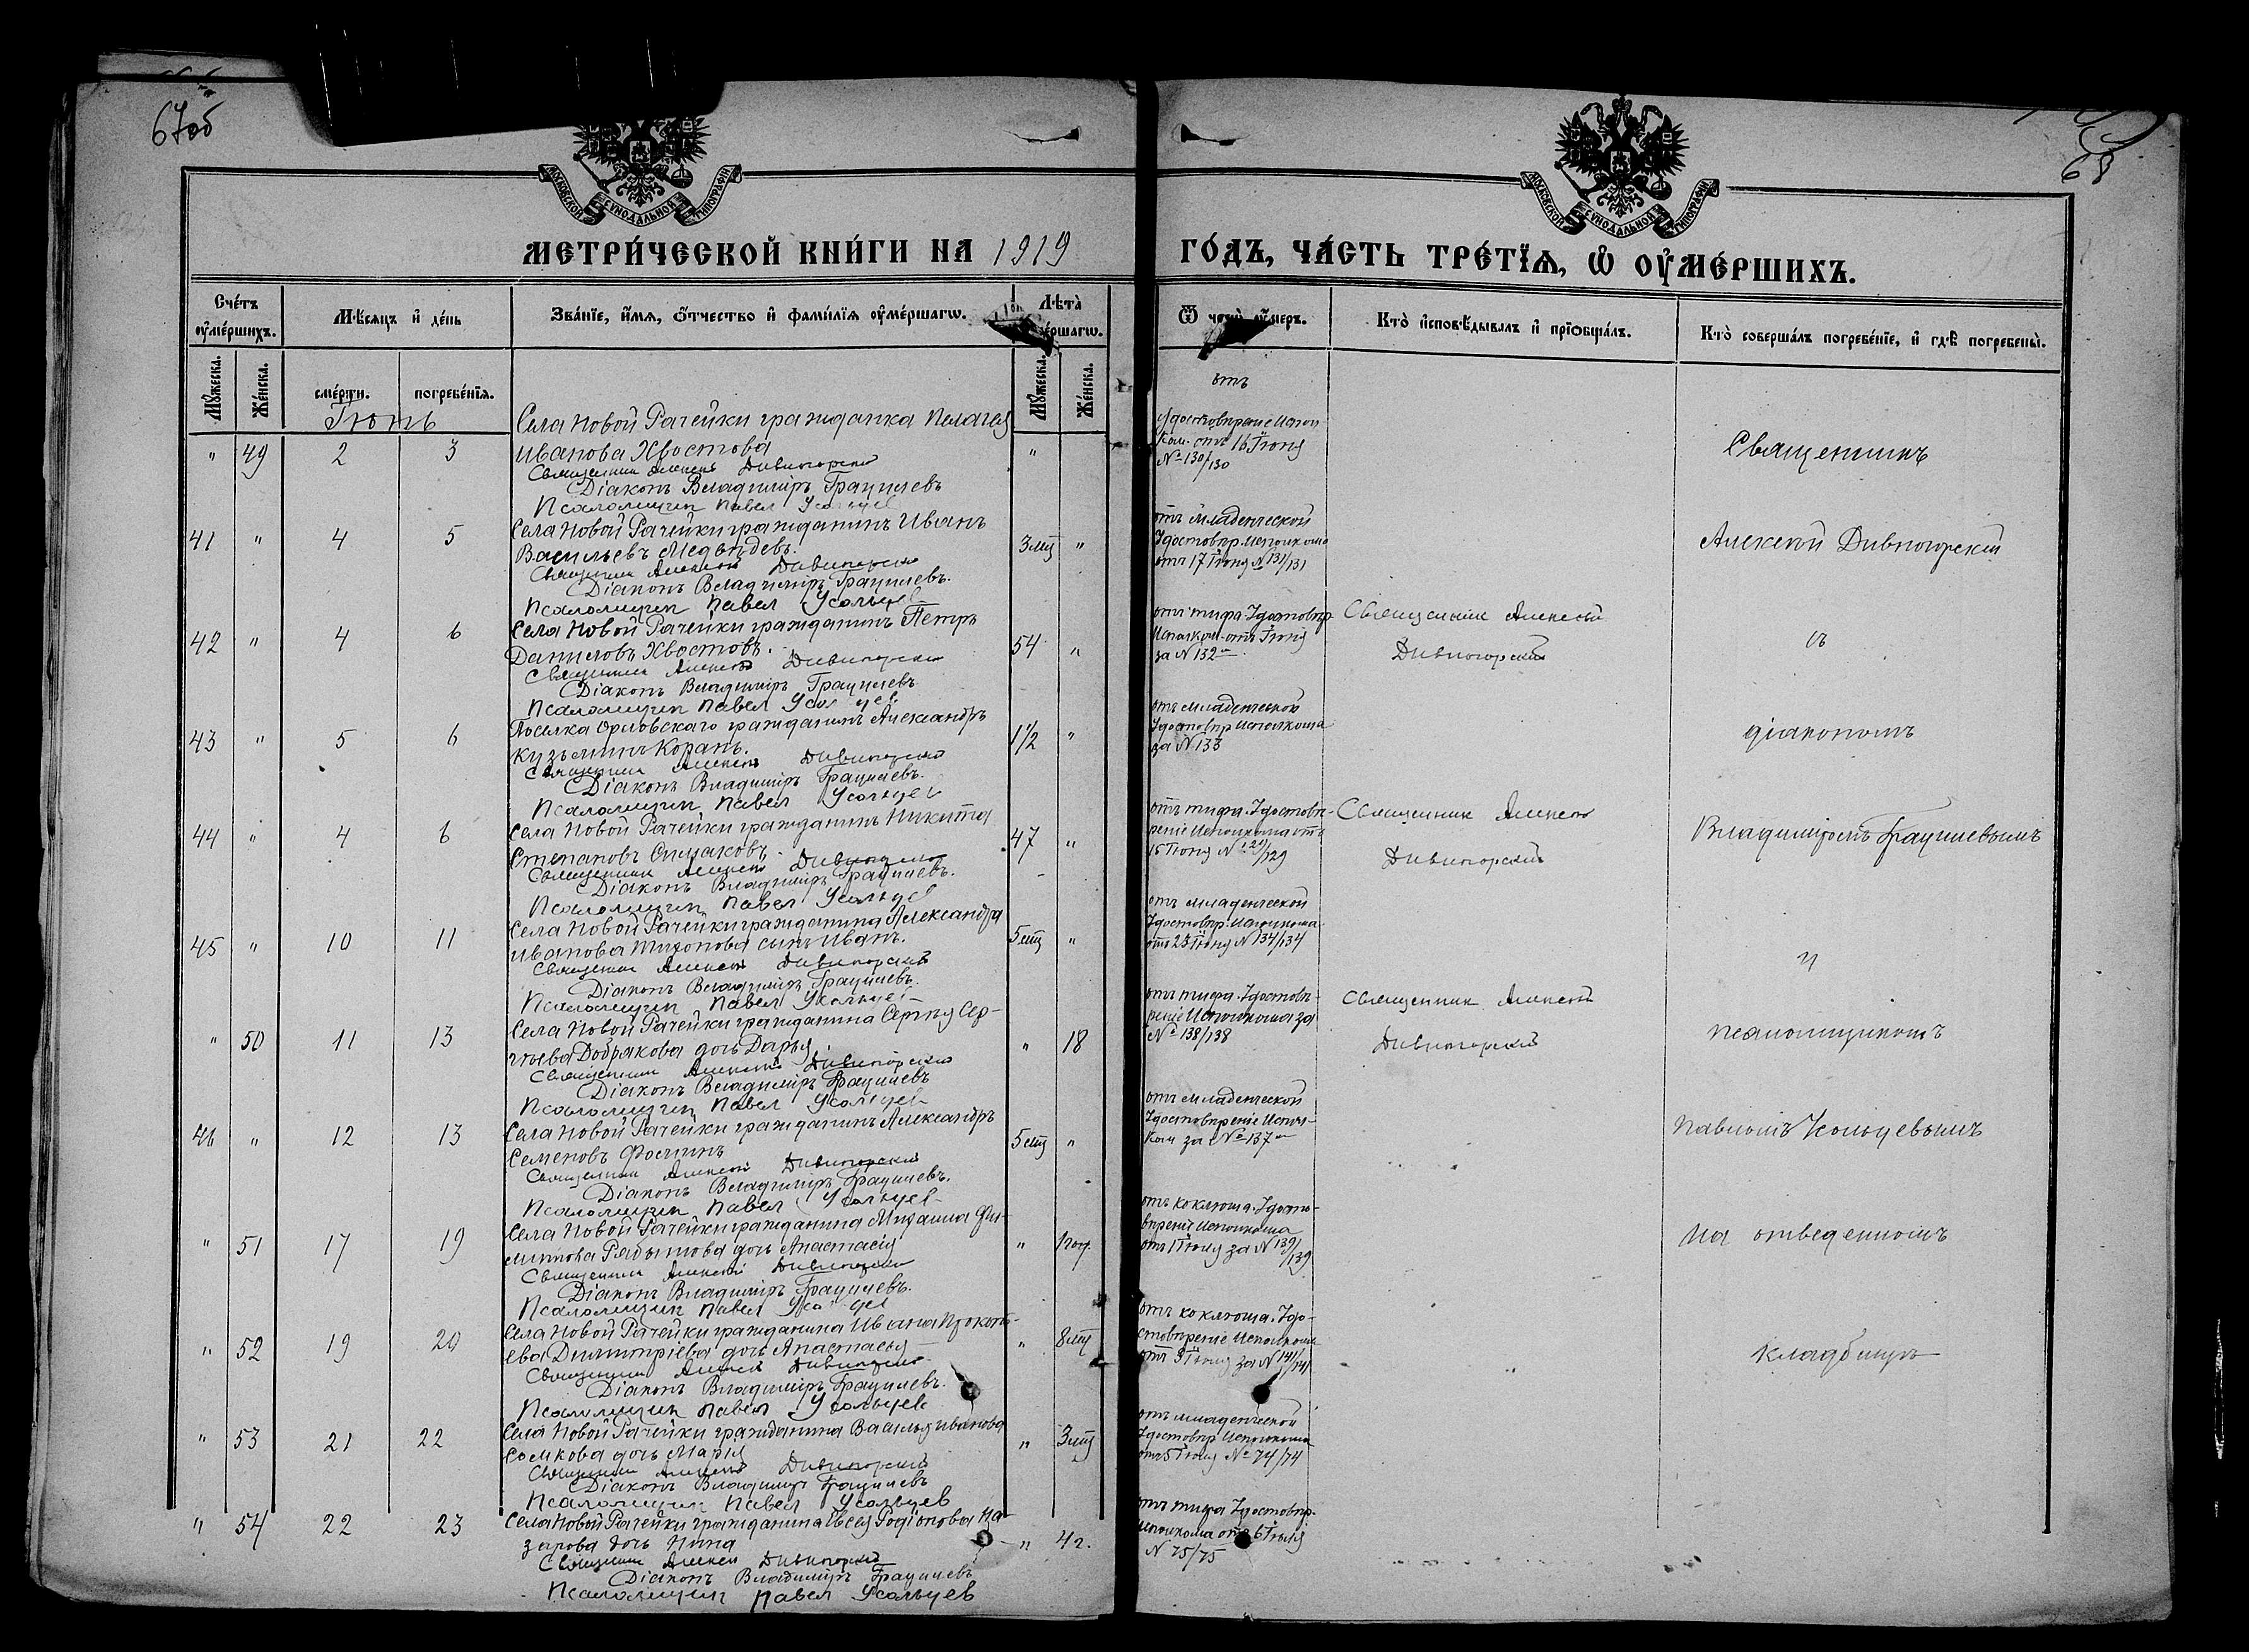 67об
68
МОСКОВСКОЙ СУНОДАЛЬНОЙ ТИПОГРАФІИ
МОСКОВСКОЙ СУНОДАЛЬНОЙ ТИПОГРАФІИ
МЕТРИ́ЧЕСКОЙ КНИ́ГИ НА 1919
ГО́ДЪ, ЧА́СТЬ ТРЕ́ТЇѦ, Ѡ҆ ОУ҆МЕ́РШИХЪ.
Сче́тъ оу҆ме́ршихъ.
Мѣсѧцъ и҆ де́нь
Зва́нїе, и҆́мѧ, ѻ҆́тчество и҆ фамилїѧ оу҆ме́ршагѡ.
Лѣта̀
Ѿ оу҆меръ.
Кто̀ и҆сповѣ́дывалъ и҆ прїѡбща́лъ.
Кто̀ соверша́лъ погребе́нїе, и҆ гдѣ̀ погребены̀.
Мꙋ́жеска. Же́нска. сме́рти. погребе́нїѧ. Мꙋ́жеска. Же́нска.
Іюнь
" 49 2 3
Села Новой Рачейки гражданка Пелагея
Иванова Хвостова
Священник Алексей Дивногорский
Діаконъ Владиміръ Грацилевъ
Псаломщик Павел Усольцев
"
отъ
Удостовѣреніе Испол
ком. отъ 16 Іюня
№ 130/130
Священникъ
41 " 4 5
Села Новой Рачейки гражданинъ Иванъ
Васильевъ Медвѣдевъ.
Священник Алексей Дивногорский
Діаконъ Владиміръ Грацилевъ.
Псаломщик Павел Усольцев
3 мѣс "
отъ младенческой
Удостовѣр. исполкома
отъ 17 Іюня № 131/131
Алексей Дивногорскій
42 " 4 6
Села Новой Рачейки гражданинъ Петръ
Даниловъ Хвостовъ.
Священник Алексей Дивногорский
Діаконъ Владиміръ Грацилевъ
Псаломщик Павел Усольцев
54 "
отъ тифа. Удостовѣр.
Исполком. отъ Іюня
за № 132
Священник Алексей
Дивногорский
съ
43 " 5 6
Поселка Орловскаго гражданинъ Александръ
Кузьминъ Корань.
Священник Алексей Дивногорский
Діаконъ Владиміръ Грацилевъ.
Псаломщик Павел Усольцев
1½ "
отъ младенческой
Удостовѣр. Исполкома
за № 133
діакономъ
44 " 4 6
Села Новой Рачейки гражданинъ Никита
Степановъ
Священник Алексей Дивногорский
Діаконъ Владиміръ Грацилевъ.
Псаломщик Павел Усольцев
47 "
отъ тифа. Удостовѣ-
реніе Исполкома отъ
15 Іюня № 129/129
Священник Алексей
Дивногорский
Владиміромъ Грацилевымъ
45 " 10 11
Села Новой Рачейки гражданина Александра
Иванова Тихонова сынъ Иванъ.
Священник Алексей Дивногорский
Діаконъ Владиміръ Грацилевъ.
Псаломщик Павел Усольцев
5 мѣс "
отъ младенческой
Удостовѣр. Исполкома
отъ 23 Іюня № 134/134
и
" 50 11 13
Села Новой Рачейки гражданина Сергѣя Сер-
гѣева Добрякова дочь Дарья
Священник Алексей Дивногорский
Діаконъ Владиміръ Грацилевъ
Псаломщик Павел Усольцев
" 18
отъ тифа. Удостовѣ-
реніе Исполкома за
№ 138/138
Священник Алексей
Дивногорский
псаломщикомъ
46 " 12 13
Села Новой Рачейки гражданинъ Александръ
Семеновъ Фоминъ
Священник Алексей Дивногорский
Діаконъ Владиміръ Грацилевъ.
Псаломщик Павел Усольцев
5 мѣс "
отъ младенческой
Удостовѣреніе Испол-
ком за № 137
Павломъ Усольцевымъ
" 51 17 19
Села Новой Рачейки гражданина Михаила Фи-
липпова дочь Анастасія
Священник Алексей Дивногорский
Діаконъ Владиміръ Грацилевъ.
Псаломщик Павел Усольцев
" 1 год.
отъ коклюша. Удосто-
вѣреніе Исполкома
отъ 1 Іюля за № 139/139
на отведенномъ
" 52 19 20
Села Новой Рачейки гражданина Ивана Прокопь-
ева Димитріева дочь Анастасья
Священник Алексей Дивногорский
Діаконъ Владиміръ Грацилевъ.
Псаломщик Павел Усольцев
" 8 мѣс
отъ коклюша. Удо-
стовѣреніе Исполкома
отъ 3 Іюля за № 141/141
кладбищѣ
" 53 21 22
Села Новой Рачейки гражданина Василья Иванова
Сомкова дочь Марія
Священник Алексей Дивногорский
Діаконъ Владиміръ Грацилевъ
Псаломщик Павел Усольцев
" 3 мѣс
отъ младенческой
Удостовѣр Исполкома
отъ 5 Іюля № 74/74
" 54 22 23
Села Новой Рачейки гражданина Евсея Родіонова На-
зарова дочь Нина
Священник Алексей Дивногорский
Діаконъ Владиміръ Грацилевъ
Псаломщик Павел Усольцев
" 4 г.
отъ тифа Удостовѣр.
Исполкома отъ 6 Іюля
№ 75/75